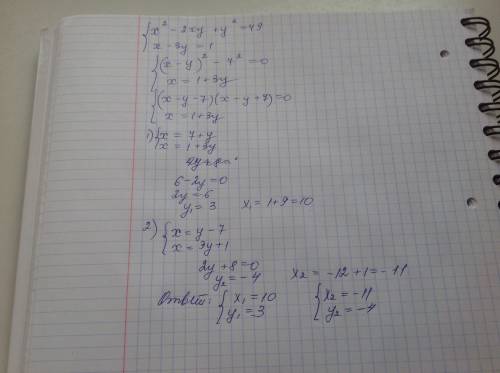 { x² - 2xy + y² = 49
x - 3y = 1
{ (x - y)² - 7² = 0
x = 1 + 3y
{ (x - y - 7)(x - y + 7) = 0
x = 1 + 3y
1) { x = 7 + y
x = 1 + 3y
6 - 2y = 0
2y = 6
y₁ = 3 x₁ = 1 + 9 = 10
2) { x = y - 7
x = 3y + 1
2y + 8 = 0
y₂ = -4 x₂ = -12 + 1 = -11
Ответ: { x₁ = 10 { x₂ = -11
y₁ = 3 y₂ = -4